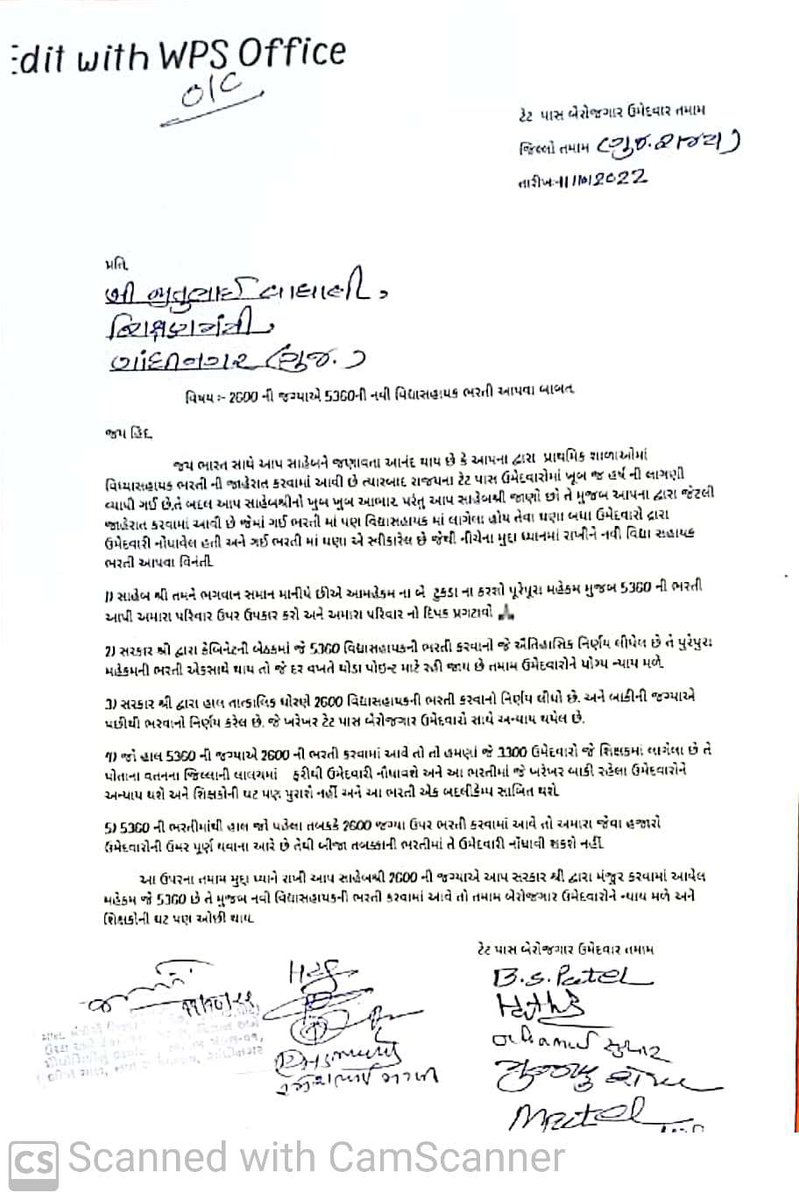 Edit with WPS Office
O/C
ટેટ પાસ બેરોજગાર ઉમેદવાર તમામ
જિલ્લો તમામ (ગુજ.રાજ્ય)
તારીખઃ-11/10/2022
પ્રતિ,
શ્રી જીતુભાઈ વાઘાણી,
શિક્ષણમંત્રી,
ગાંધીનગર (ગુજ.)
વિષય :- 2600 ની જગ્યાએ 5360ની નવી વિદ્યાસહાયક ભરતી આપવા બાબત.
જય હિંદ,
જય ભારત સાથે આપ સાહેબને જણાવતા આનંદ થાય છે કે આપના દ્વારા પ્રાથમિક શાળાઓમાં
વિધ્યાસહાયક ભરતી ની જાહેરાત કરવામાં આવી છે ત્યારબાદ રાજ્યના ટેટ પાસ ઉમેદવારોમાં ખૂબ જ હર્ષ ની લાગણી
વ્યાપી ગઈ છે,તે બદલ આપ સાહેબશ્રીનો ખુબ ખુબ આભાર. પરંતુ આપ સાહેબશ્રી જાણો છો તે મુજબ આપના દ્વારા જેટલી
જાહેરાત કરવામાં આવી છે જેમાં ગઈ ભરતી માં પણ વિદ્યાસહાયક માં લાગેલા હોય તેવા ઘણા બધા ઉમેદવારો દ્વારા
ઉમેદવારી નોંધાવેલ હતી અને ગઈ ભરતી માં ઘણા એ સ્વીકારેલ છે જેથી નીચેના મુદ્દા ધ્યાનમાં રાખીને નવી વિદ્યા સહાયક
ભરતી આપવા વિનંતી.
1) સાહેબ શ્રી તમને ભગવાન સમાન માનીયે છીએ આમહેકમ ના બે ટુકડા ના કરશો પૂરેપૂરા મહેકમ મુજબ 5360 ની ભરતી
આપી અમારા પરિવાર ઉપર ઉપકાર કરો અને અમારા પરિવાર નો દિપક પ્રગટાવો 🙏
2) સરકાર શ્રી દ્વારા કેબિનેટની બેઠકમાં જે 5360 વિદ્યાસહાયકની ભરતી કરવાનો જે ઐતિહાસિક નિર્ણય લીધેલ છે તે પુરેપુરા
મહેકમની ભરતી એકસાથે થાય તો જે દર વખતે થોડા પોઇન્ટ માટે રહી જાય છે તમામ ઉમેદવારોને યોગ્ય ન્યાય મળે.
3) સરકાર શ્રી દ્વારા હાલ તાત્કાલિક ધોરણે 2600 વિદ્યાસહાયકની ભરતી કરવાનો નિર્ણય લીધો છે. અને બાકીની જગ્યાએ
પછીથી ભરવાનો નિર્ણય કરેલ છે. જે ખરેખર ટેટ પાસ બેરોજગાર ઉમેદવારો સાથે અન્યાય થયેલ છે.
4) જો હાલ 5360 ની જગ્યાએ 2600 ની ભરતી કરવામાં આવે તો તો હમણાં જે 3300 ઉમેદવારો જે શિક્ષકમાં લાગેલા છે તે
પોતાના વતનના જિલ્લાની લાલચમાં ફરીથી ઉમેદવારી નોંધાવશે અને આ ભરતીમાં જે ખરેખર બાકી રહેલા ઉમેદવારોને
અન્યાય થશે અને શિક્ષકોની ઘટ પણ પુરાશે નહીં અને આ ભરતી એક બદલીકેમ્પ સાબિત થશે.
5) 5360 ની ભરતીમાંથી હાલ જો પહેલા તબક્કે 2600 જગ્યા ઉપર ભરતી કરવામાં આવે તો અમારા જેવા હજારો
ઉમેદવારોની ઉંમર પૂર્ણ થવાના આરે છે તેથી બીજા તબક્કાની ભરતીમાં તે ઉમેદવારી નોંધાવી શકશે નહીં.
આ ઉપરના તમામ મુદ્દા ધ્યાને રાખી આપ સાહેબશ્રી 2600 ની જગ્યાએ આપ સરકાર શ્રી દ્વારા મંજુર કરવામાં આવેલ
મહેકમ જે 5360 છે તે મુજબ નવી વિદ્યાસહાયકની ભરતી કરવામાં આવે તો તમામ બેરોજગાર ઉમેદવારોને ન્યાય મળે અને
શિક્ષકોની ઘટ પણ ઓછી થાય.
ટેટ પાસ બેરોજગાર ઉમેદવાર તમામ
B.S. Patel
સુથાર
MPatel
CS Scanned with CamScanner